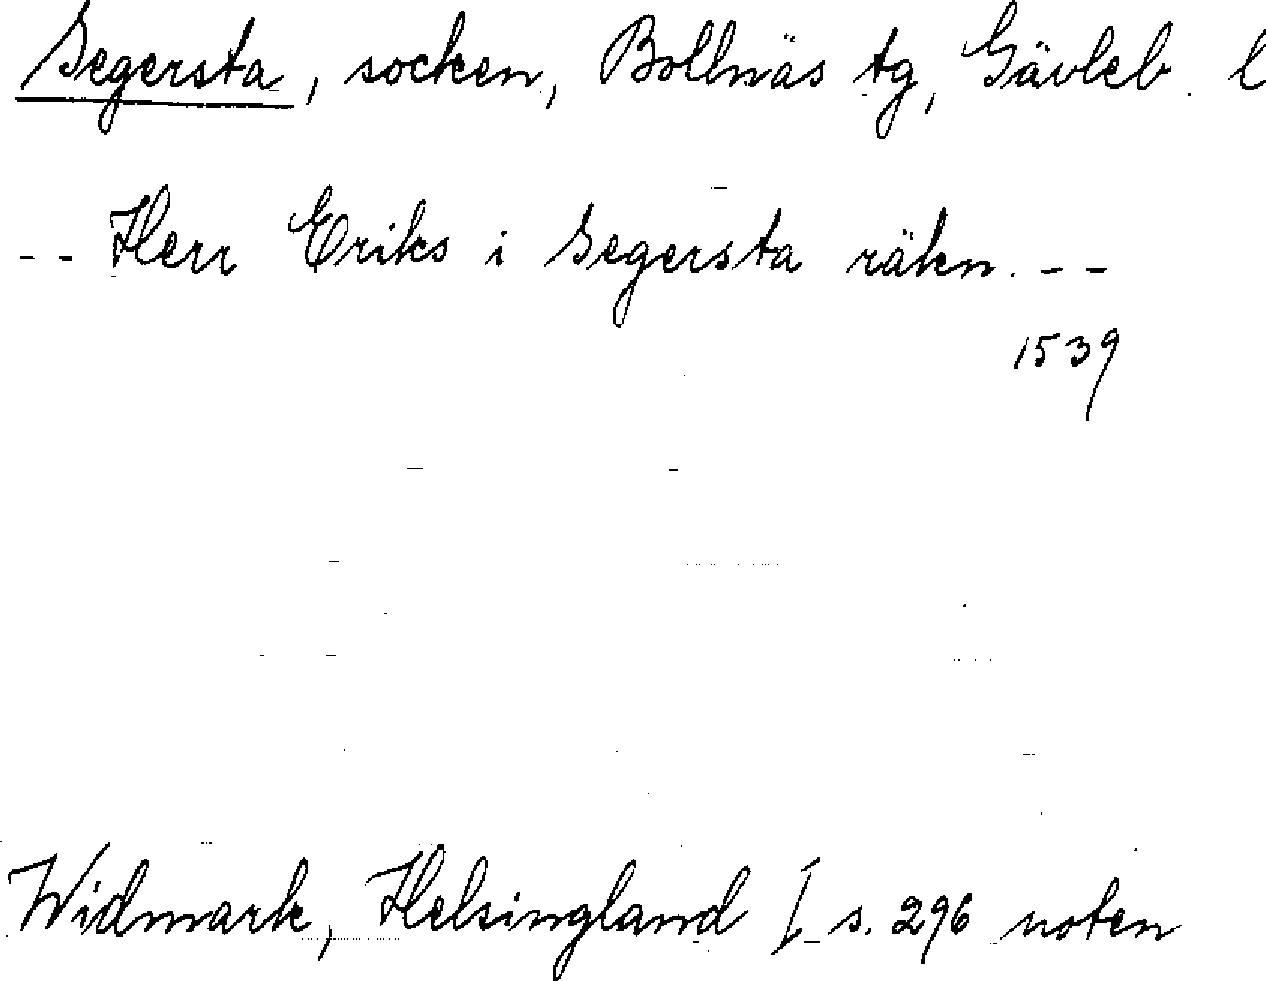 Segersta, socken, Bollnäs tg, Gävleb. l
-- Herr Eriks i Segersta räkn. --
1539
Widmark, Helsingland I s. 296 noten